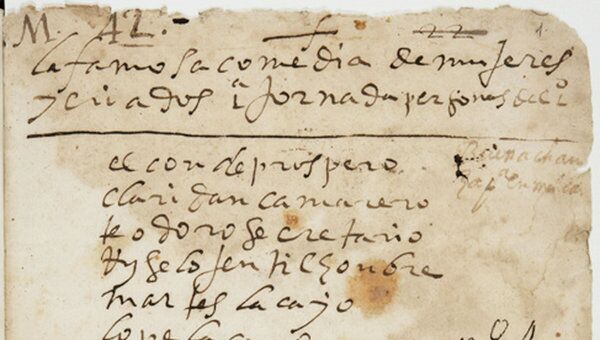 M. 42. 22
la famosa comedia de mujeres
y criados 1ª Jornada personas de
el conde prospero
claridan camarero
teodoro secretario
jentilhonbre
martes lacayo
lope